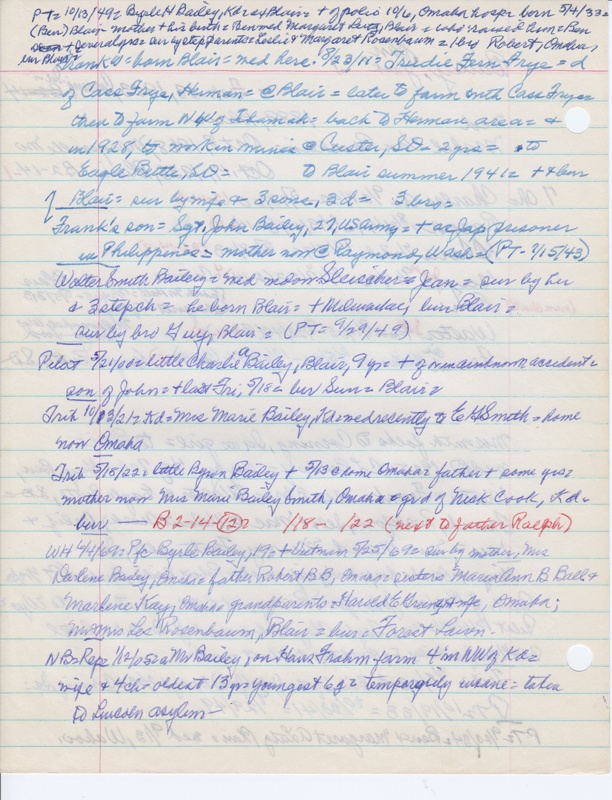 PT= 10/13/49= Byrle H Bailey, Kd er Blair= + of polio 10/6, Omaha hosp= born 5/4/33=
(Ben) Blair= mother + his birth= Ben med Margaret Blair = who raised him= Ben
+ several yrs= sur by step parents= Leslie & Margaret Rosenbaum = bro Robert, Omaha,
bur Blair=
Frank W= born Blair= med here. 8/23/11= Trudie Fern Frye= d
of Cass Frye, Herman= @ Blair= later to farm with Cass Frye=
then to farm NW of Tekamah= back to Herman area= &
in 1928, to work in mines @ Custer, SD= 2 yrs= to
Eagle Butte, SD= to Blair summer 1941= + & bur
Blair= sur by wife & 3 sons, 2 d= 3 bros=
Frank's son= Sgt. John Bailey, 27, US Army= + as Jap prisoner
in Philippines= mother now @ Raymond, Wash= (PT- 7/15/43)
Walter Smith Bailey= med Sleischer= Jean= sur by her
& 3 step ch= he born Blair= + Milwaukee, bur Blair=
sur by bro Guy, Blair= (PT= 9/29/49)
Pilot 5/21/00= little Charlie Bailey, Blair, 9 yr= + of accident=
son of John= + last Fri, 5/18= bur Sun= Blair=
Trib 10/13/21= Kd= Mrs Marie Bailey, Kd= med recently to E H Smith= home
now Omaha
Trib 5/15/22= little Byron Bailey + 5/13 @ home Omaha= father + some yrs=
mother now Mrs Marie Bailey Smith, Omaha= grd of Nick Cook, Kd=
bur — B 2-14-(12)= 1/18- 1/22 (next to father Ralph)
WH 4/4/69= Pfc Byrle Bailey, 19= + Vietnam 3/25/69= sur by mother, Mrs
Darlene Bailey, Omaha= father Robert B B, Omaha= sisters Mariann B Bell &
Marlene Kay, Omaha grandparents= Harold E & wife, Omaha;
Mr Mrs Les Rosenbaum, Blair= bur= Forest Lawn-
NB= Rep= 1/12/05= a Mr Bailey, on Hans Frahm farm 4 mi NW of Kd=
wife & 4 ch= oldest 13 yr= youngest 6 = temporarily insane= taken
to Lincoln asylum—